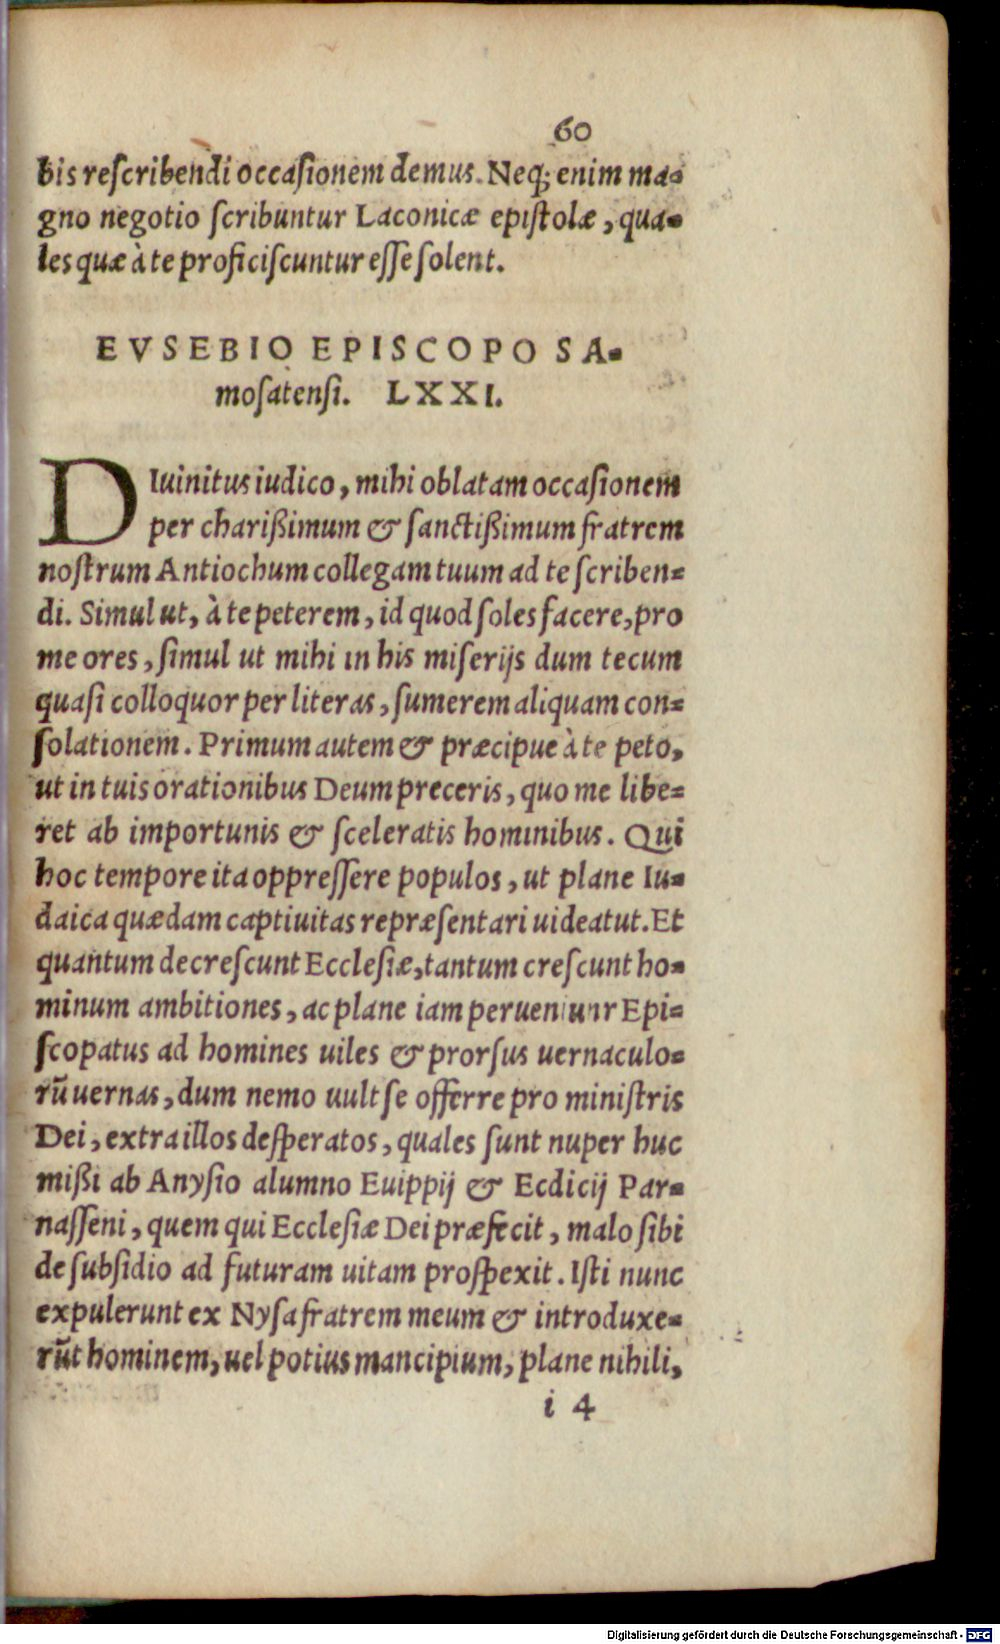 60
bis reſcribendi occaſionem demus. Neq; enim ma-
gno negotio ſcribuntur Laconicæ epiſtolæ, qua-
les quæ à te proficiſcuntur eſſe ſolent.
EVSEBIO EPISCOPO SA-
moſatenſi. LXXI.
DIuinitus iudico, mihi oblatam occaſionem
per charißimum & ſanctißimum fratrem
noſtrum Antiochum collegam tuum ad te ſcriben-
di. Simul ut, à te peterem, id quod ſoles facere, pro
me ores, ſimul ut mihi in his miſerijs dum tecum
quaſi colloquor per literas, ſumerem aliquam con-
ſolationem. Primum autem & præcipue à te peto,
ut in tuis orationibus Deum preceris, quo me libe-
ret ab importunis & ſceleratis hominibus. Qui
hoc tempore ita oppreſſere populos, ut plane Iu-
daica quædam captiuitas repræſentari uideatut. Et
quantum decreſcunt Eccleſiæ, tantum creſcunt ho-
minum ambitiones, ac plane iam perueniunr Epi-
ſcopatus ad homines uiles & prorſus uernaculo-
rũ uernas, dum nemo uult ſe offerre pro miniſtris
Dei, extra illos deſperatos, quales ſunt nuper huc
mißi ab Anyſio alumno Euippij & Ecdicij Par-
naſſeni, quem qui Eccleſiæ Dei præfecit, malo ſibi
de ſubſidio ad futuram uitam proſpexit. Iſti nunc
expulerunt ex Nyſa fratrem meum & introduxe-
rũt hominem, uel potius mancipium, plane nihili,
i 4
Digitalisierung gefördert durch die Deutsche Forschungsgemeinschaft - DFG